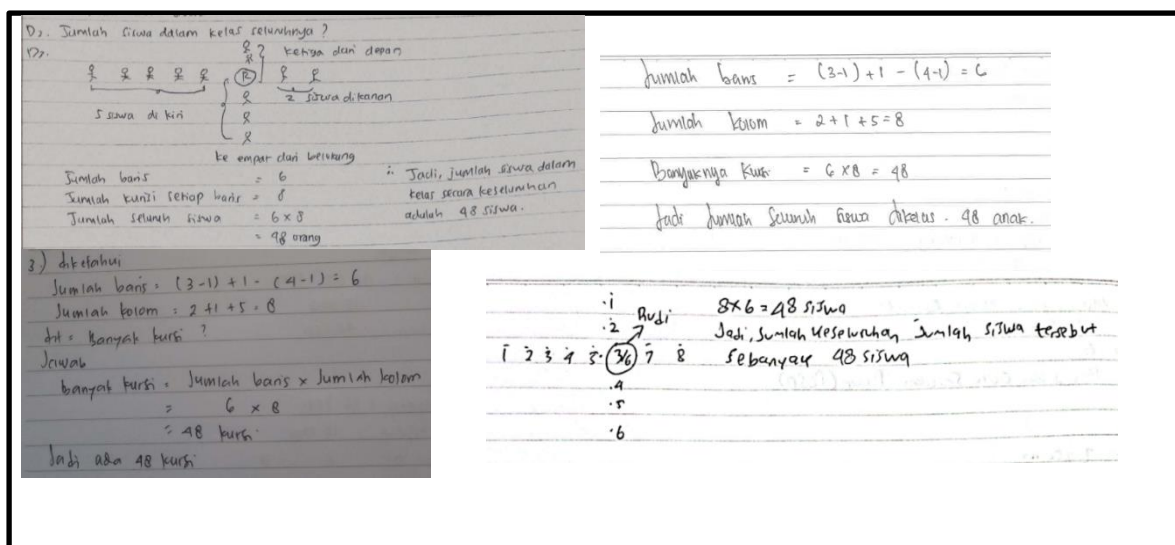 D2. Jumlah siswa dalam kelas seluruhnya ?
D3.
ketiga dari depan
R
5 siswa di kiri
2 siswa dikanan
ke empat dari belakang
Jumlah baris = 6
Jumlah kursi setiap baris = 8
Jumlah seluruh siswa = 6 x 8
= 48 orang
∴ Jadi, jumlah siswa dalam
kelas secara keseluruhan
adalah 48 siswa.
Jumlah baris = (3-1) + 1 - (4-1) = 6
Jumlah kolom = 2 + 1 + 5 = 8
Banyaknya kursi = 6 x 8 = 48
Jadi Jumlah Seluruh siswa dikelas . 48 anak.
3.) diketahui
Jumlah baris = (3-1) + 1 - (4-1) = 6
Jumlah kolom = 2 + 1 + 5 = 8
dit = Banyak kursi ?
Jawab
banyak kursi = Jumlah baris x Jumlah kolom
= 6 x 8
= 48 kursi
Jadi ada 48 kursi
.1
.2
Rudi
1 2 3 4 5 3/6 7 8
.4
.5
.6
8x6 = 48 siswa
Jadi, Jumlah keseluruhan Jumlah siswa tersebut
sebanyak 48 siswa